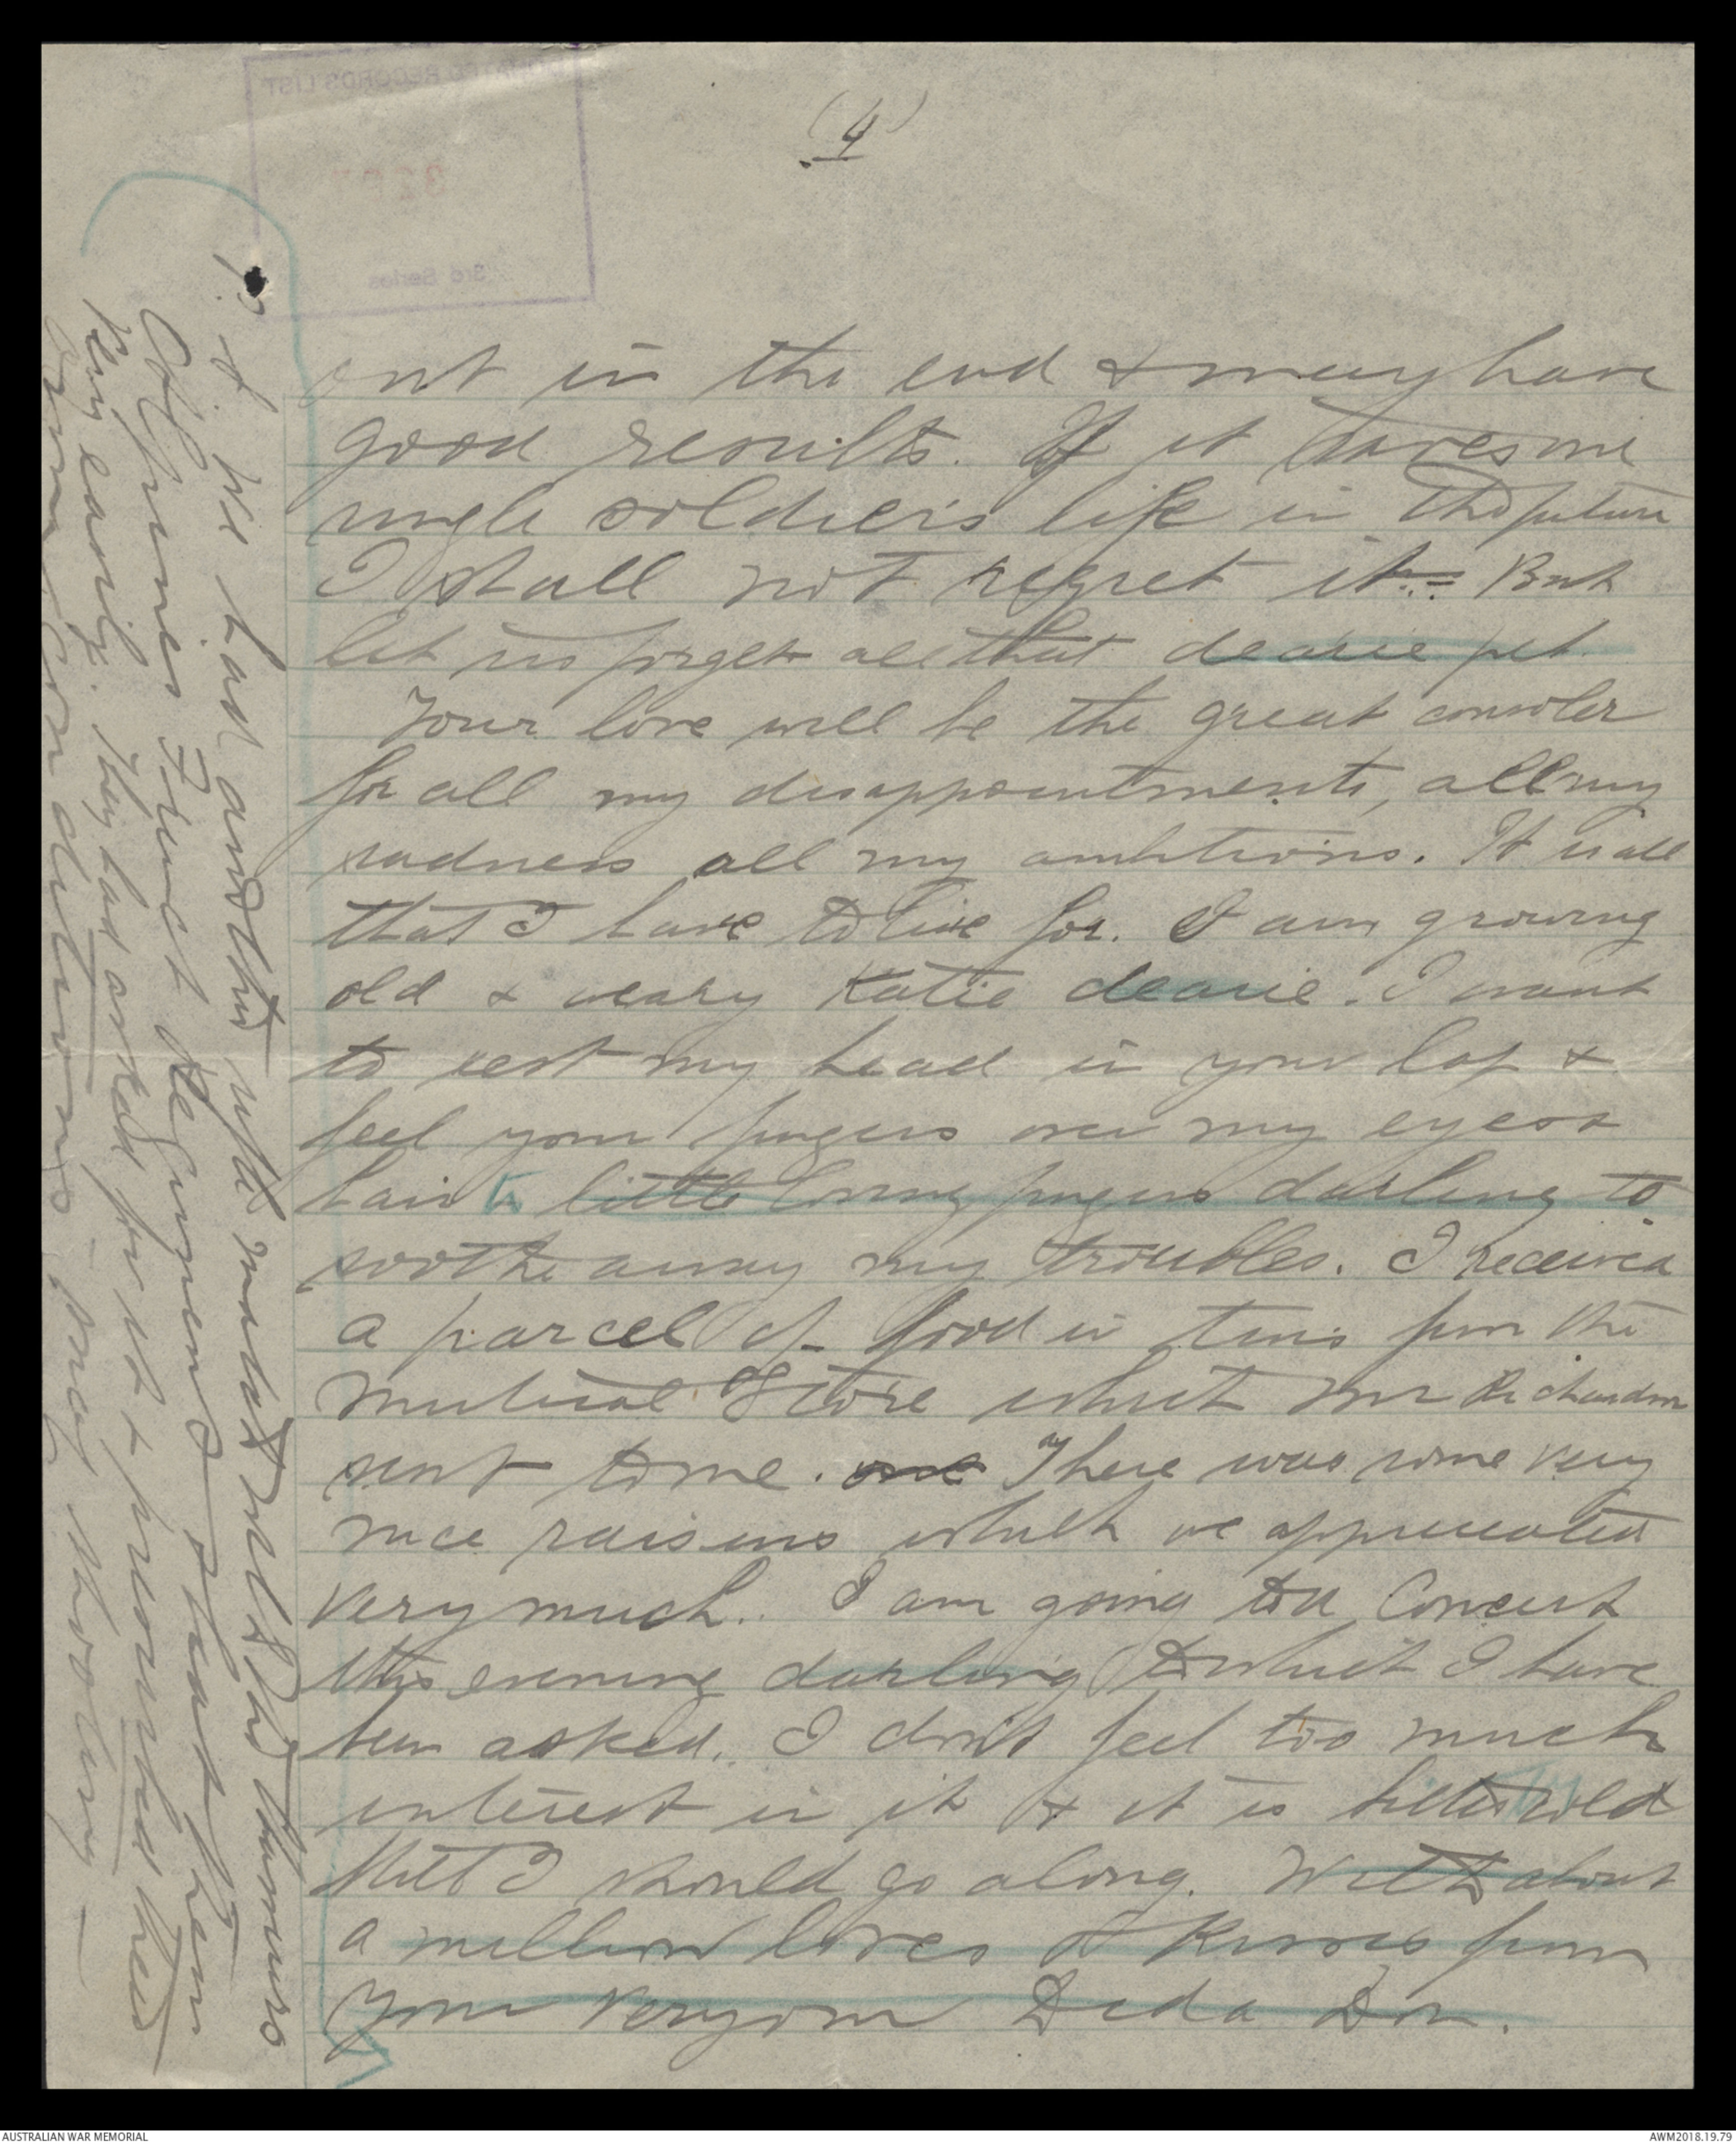 (4)
out in the end & may have
good results. If it saves one
single soldier's life in the future
I shall not regret it. - But
let us forget all that dearie pet
Your love will be the great consoler
for all my disappointments, all my
sadness all my ambitions. It is all
that I have to live for. I am growing
old & weary Katie dearie. I want
to rest my head in your lap &
feel your fingers over my eyes &
hair little loving fingers darling to
soothe away my troubles. I received
a parcel of food in tins from the
Mutual Store which Mr Richardson
sent to me. There was some very
nice raisins which we appreciated
very much. I am going to a Concert
this evening darling to which I have
been asked. I don't feel too much
interest in it & it is bitter cold
still I should go along. With about
a million loves & kisses from
your very own Dida Don.
We had another rifle match
Officers French Regiment & beat them
very easily. They had asked for it & provided their
own conditions - snap shooting -
3rd Series
RECORDS LIST
AUSTRALIAN WAR MEMORIAL
AWM2018.19.79